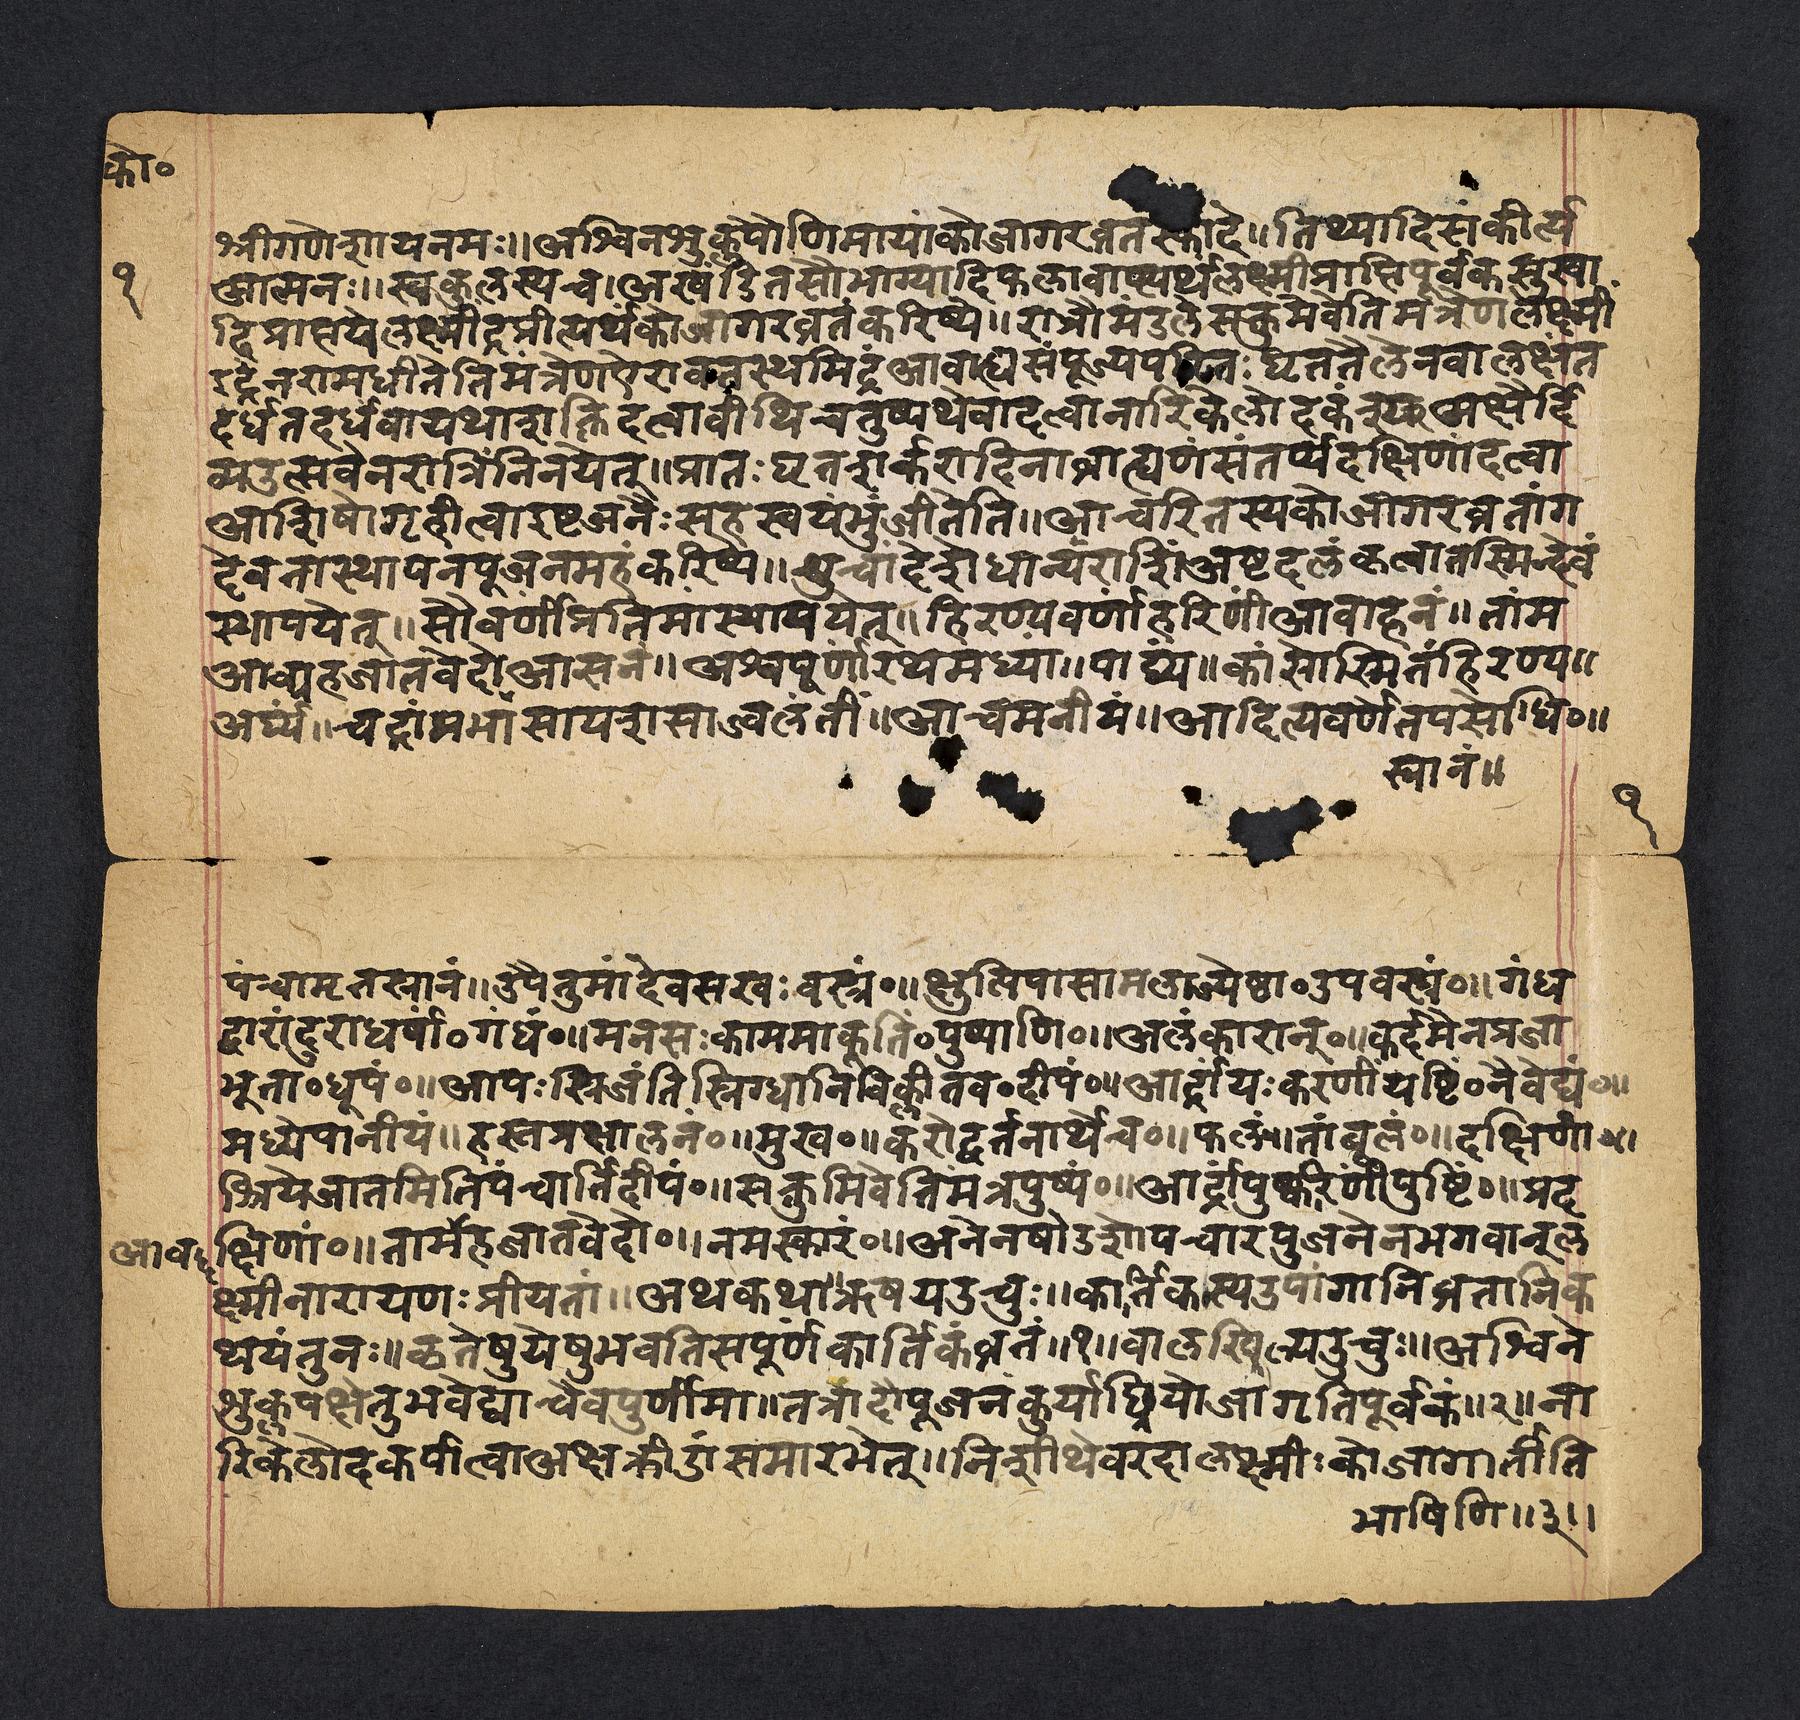 को॰
श्रीगणेशायनमः॥अश्विनशुक्लपौणिमायांकोजागरव्रतंस्कांदे॥तिथ्यादिसंकीर्त्य
१
आत्मनः॥स्वकुलस्यच।अखंडितसौभाग्यादिफलावाप्त्यर्थंलक्ष्मीप्राप्तिपूर्वकसुखा
दिप्राप्तयेलक्ष्मींद्रप्रीत्यर्थंकोजागरव्रतंकरिष्ये॥रात्रौमंडलेसक्तुमेवेतिमंत्रेणलक्ष्मीं
इंद्रंनरामधीतेतिमंत्रेणऐरावतस्थमिंद्रंआवाह्यसंपूज्यपरितः घृततैलेनवालक्षंत
दर्धंतदर्धंवायथाशक्तिदत्वावीथिचतुष्पथेवादत्वानारिकेलोदकं अक्षैर्दि
व्यउत्सवेनरात्रिंनिनयेत्॥प्रातःघृतशर्करादिनाब्राह्मणंसंतर्प्यदक्षिणांदत्वा
आशिषोगृहीत्वाइष्टजनैःसहस्वयंभुंजीतेति॥आचरितस्यकोजागरव्रतांग
देवतास्थापनपूजनमहंकरिष्ये॥शुचौदेशेधान्यराशिंअष्टदलंकृत्वातस्मिन्देवं
स्थापयेत्॥सौवर्णीप्रतिमांस्थापयेत्॥हिरण्यवर्णांहरिणींआवाहनं॥तांम
आव्यहजातवेदोआसनं॥अश्वपूर्णांरथमध्यां॥पाद्यं॥कांसोस्मितांहिरण्य॥
अर्घ्यं॥चंद्रांप्रभासांयशसाज्वलंतीं॥आचमनीयं॥आदित्यवर्णेतपसोधि॰॥
स्नानं॥
१
पंचामृतस्नानं॥उपैतुमांदेवसखः वस्त्रं॰॥क्षुत्पिपासामलांज्येष्ठा॰उपवस्त्रं॰॥गंध
द्वारांदुराधर्षां॰गंधं॰॥मनसःकाममाकूतिं॰पुष्पाणि॰॥अलंकारान्॰॥कर्दमेनप्रजा
भूता॰धूपं॰॥आपःस्त्रिजंतिस्निग्धानिचिक्लीतव॰दीपं॰॥आर्द्रांयःकरणींयष्टिं॰नैवेद्यं॰॥
मध्येपानीयं॥हस्तप्रक्षालनं॰॥मुख॰॥करोद्वर्तनार्थेच॰॥फलं॥तांबूलं॰॥दक्षिणां॰॥
श्रियेजातमितिपंचार्तिदीपं॰॥सक्तुमिवेतिमंत्रपुष्पं॰॥आर्द्रांपुष्करिणींपुष्टिं॰॥प्रद
क्षिणां॰॥तार्मेहजातवेदो॰॥नमस्कारं॰॥अनेनषोडशोपचारपुजनेनभगवान्ल
क्ष्मीनारायणःप्रीयतां॥अथकथा॥ऋषयउचुः॥कार्तिकस्यउपांगानिव्रतानिक
थयंतुनः॥कृतेषुयेषुभवतिसंपूर्णंकार्तिकंव्रतं॥१॥वालखिल्यउचुः॥अश्विने
शुक्लपक्षेतुभवेद्याचैवपुर्णीमा॥तत्रादौपूजनंकुर्याछ्रियोजागृतिपूर्वकं॥२॥ना
रिकेलोदकंपीत्वाअक्षक्रीडांसमारभेत्॥निशीथेवरदालक्ष्मीःकोजागार्तीति
भाषिणि॥३॥